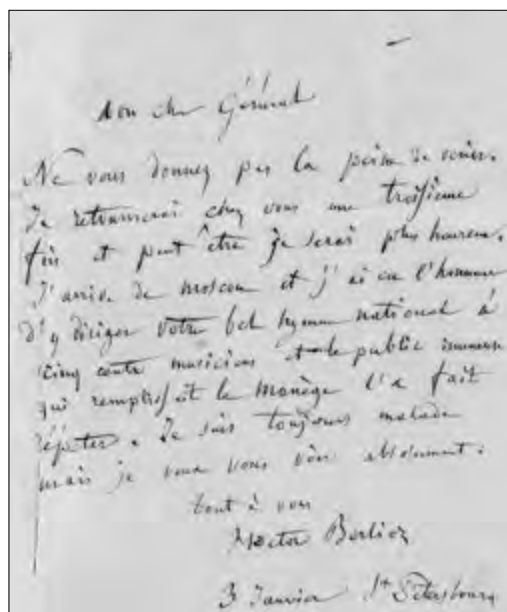 Mon cher Général
Ne vous donnez pas la peine de venir.
Je retournerai chez vous une troisième
fois et peut être je serai plus heureux.
J'arrive de Moscou et j'ai eu l'honneur
d'y diriger votre bel hymne national à
cinq cents musiciens et le public immense
qui remplissait le manège l'a fait
répéter. Je suis toujours malade
mais je veux vous voir absolument.
tout à vous
Hector Berlioz
3 Janvier St Pétersbourg